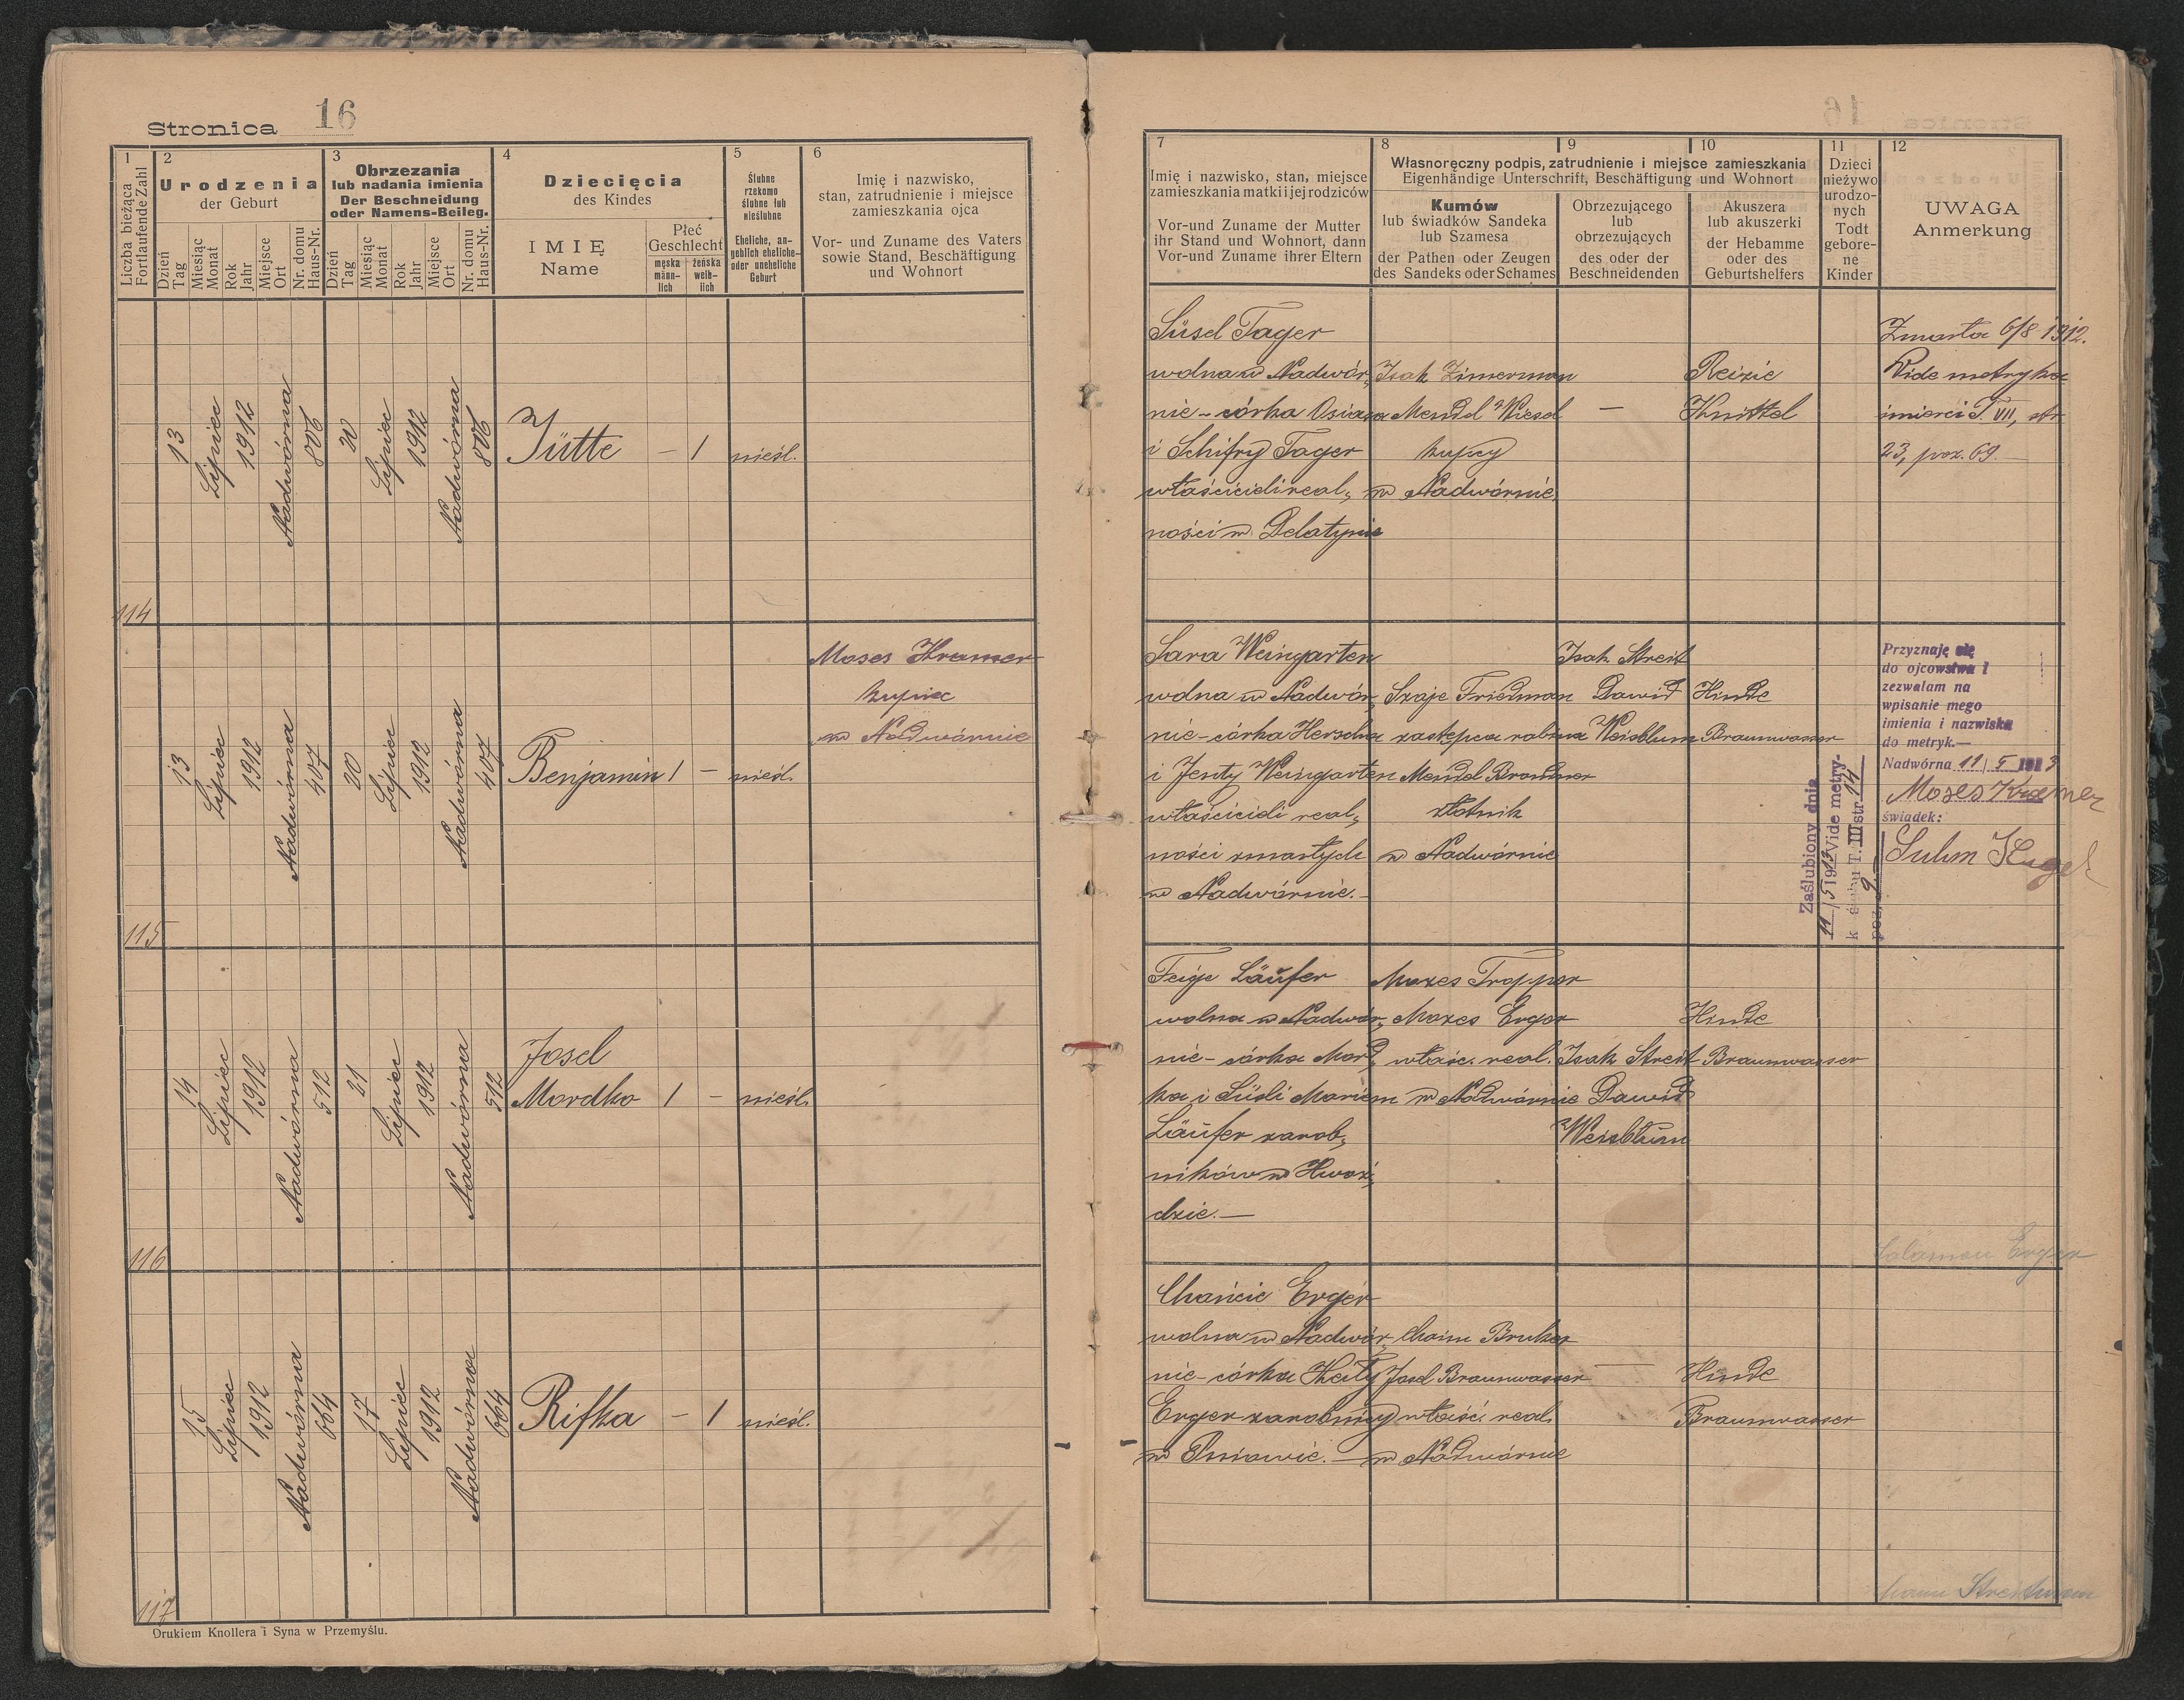 Stronica 16
1
Liczba bieżąca
Fortlaufende Zahl
2
Urodzenia
der Geburt
Dzień
Tag
Miesiąc
Monat
Rok
Jahr
Miejsce
Ort
Nr. domu
Haus-Nr.
3
Obrzezania
lub nadania imienia
Der Beschneidung
oder Namens-Beileg.
Dzień
Tag
Miesiąc
Monat
Rok
Jahr
Miejsce
Ort
Nr. domu
Haus-Nr.
4
Dziecięcia
des Kindes
IMIĘ
Name
Płeć
Geschlecht
męska
männ-
lich
żeńska
weib-
lich
5
Ślubne
rzekomo
ślubne lub
nieślubne
Eheliche, an-
geblich eheliche-
oder uneheliche
Geburt
6
Imię i nazwisko,
stan, zatrudnienie i miejsce
zamieszkania ojca
Vor- und Zuname des Vaters
sowie Stand, Beschäftigung
und Wohnort
7
Imię i nazwisko, stan, miejsce
zamieszkania matki i jej rodziców
Vor-und Zuname der Mutter
ihr Stand und Wohnort, dann
Vor-und Zuname ihrer Eltern
8
9
10
Własnoręczny podpis, zatrudnienie i miejsce zamieszkania
Eigenhändige Unterschrift, Beschäftigung und Wohnort
Kumów
lub świadków Sandeka
lub Szamesa
der Pathen oder Zeugen
des Sandeks oder Schames
Obrzezującego
lub
obrzezujących
des oder der
Beschneidenden
Akuszera
lub akuszerki
der Hebamme
oder des
Geburtshelfers
11
Dzieci
nieżywo
urodzo-
nych
Todt
gebore-
ne
Kinder
12
UWAGA
Anmerkung
114
13
Lipiec
1912
Nadwórna
806
20
Lipiec
1912
Nadwórna
806
Jütte
– 1
nieśl.
Süsel Tager
wolna w Nadwór„
nie – córka Osiasa
i Schifry Tager
właścicieli real„
ności w Delatynie
Isak Zimerman
Mendel Wiesel
kupcy
w Nadwórnie
–
Reizie
Knittel
Zmarła 6/8 1912.
Vide metryka
śmierci T. VII, str.
23, poz. 69. –
115
13
Lipiec
1912
Nadwórna
407
20
Lipiec
1912
Nadwórna
407
Benjamin
1 –
nieśl.
Moses Kramer
kupiec
w Nadwórnie
Sara Weingarten
wolna w Nadwór„
nie – córka Herscha
i Jenty Weingarten
właścicieli real„
ności zmarłych
w Nadwórnie. –
Szaje Friedman
zastępca rabina
Mendel Brandner
złotnik
w Nadwórnie
Isak Streit
Dawid
Weisblum
Hinde
Braunwasser
Zaślubiony dnia
11/5 1913 Vide metry-
k ślubu T. III str. 14
poz. 9
Przyznaję się
do ojcowstwa i
zezwalam na
wpisanie mego
imienia i nazwiska
do metryk.—
Nadwórna 11/5 1913
Moses Kramer
świadek:
116
14
Lipiec
1912
Nadwórna
512
21
Lipiec
1912
Nadwórna
512
Josel
Mordko
1 –
nieśl.
Feige Läufer
wolna w Nadwór„
nie – córka Mord„
ka i Süsli Mariem
Läufer zarob„
ników w Hwoź„
dzie. –
Mozes Tropper
Mozes Erger
właśc. real.
w Nadwórnie
Isak Streit
Dawid
Weisblum
Hinde
Braunwasser
Salamon Erger
117
15
Lipiec
1912
Nadwórna
664
17
Lipiec
1912
Nadwórna
664
Rifka
– 1
nieśl.
Chańcie Erger
wolna w Nadwór„
nie – córka Heity
Erger zarobnicy
w Pniowie. –
Chaim Bruker
Josel Braunwasser
właść. real.
w Nadwórnie
–
Hinde
Braunwasser
Drukiem Knollera i Syna w Przemyślu.